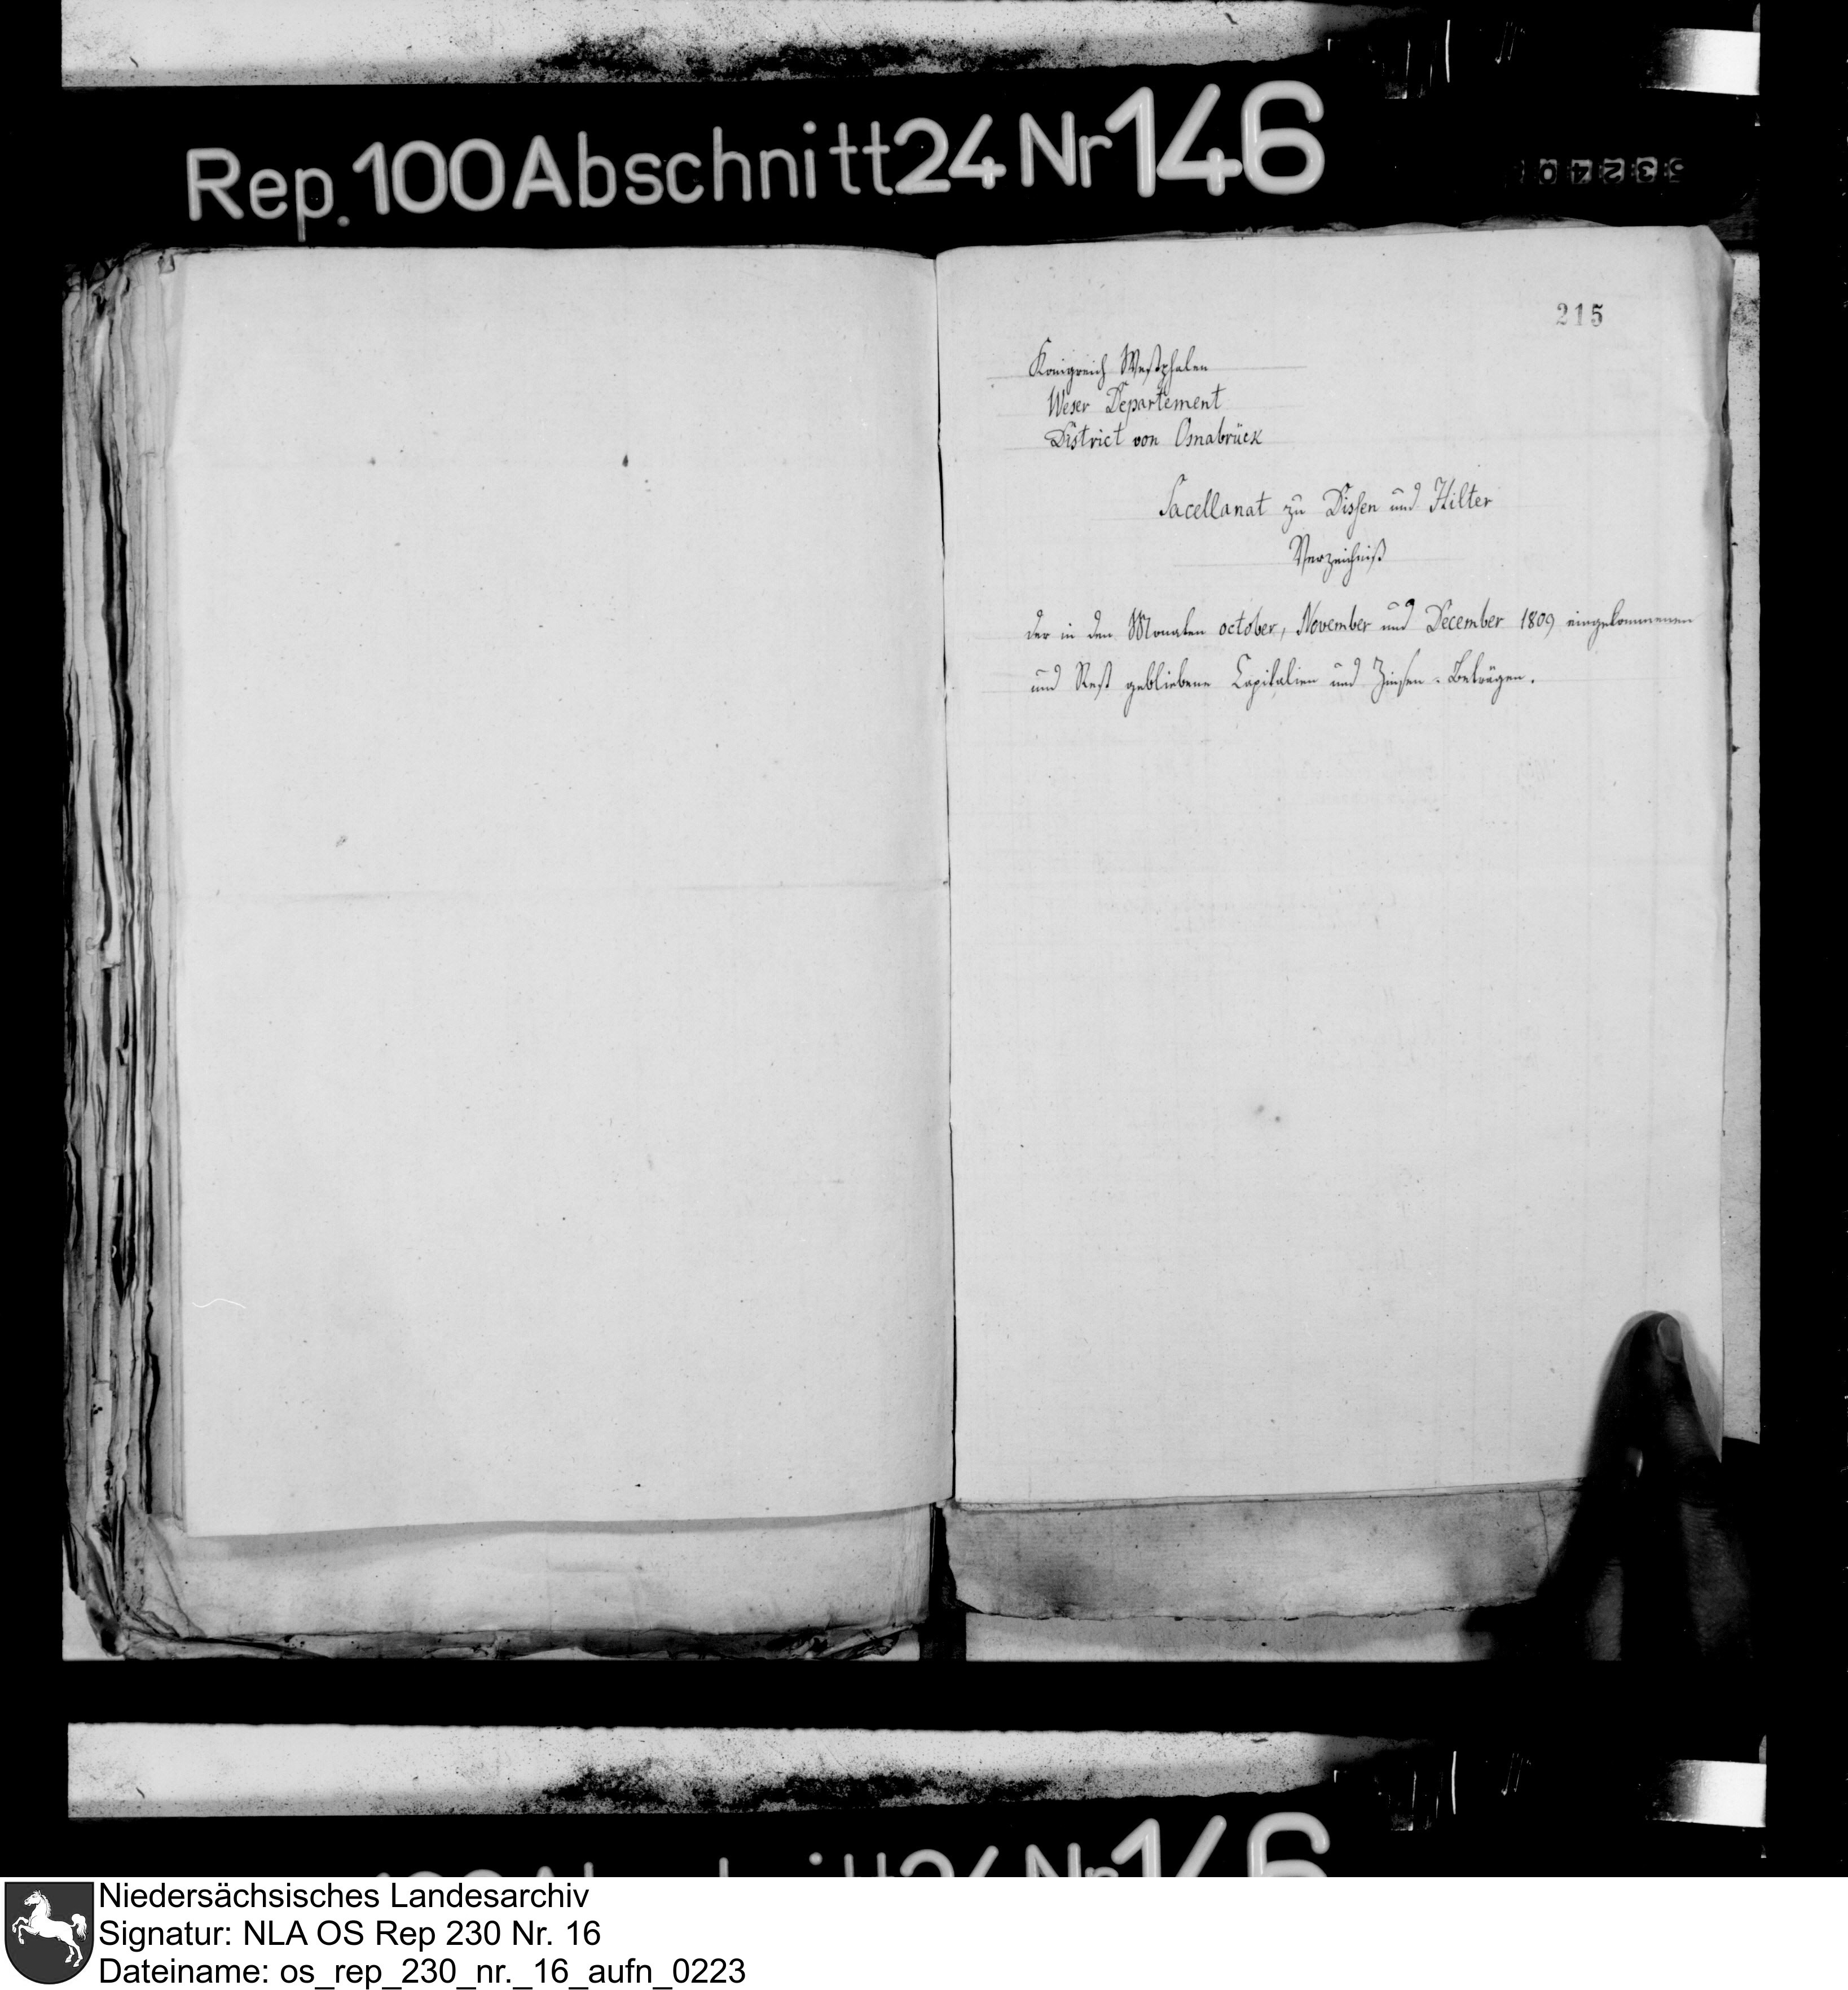 Rep. 100 Abschnitt 24 Nr 146
215
Königreich Westphalen
Weser Departement
District von Osnabrück
Sacellanat zu Dissen und Hilter
Verzeichniß
der in den Monaten october, November und December 1809 eingekommenen
und Rest gebliebene Capitalien und Zinsen-Beträgen.
Niedersächsisches Landesarchiv
Signatur: NLA OS Rep 230 Nr. 16
Dateiname: os_rep_230_nr._16_aufn_0223